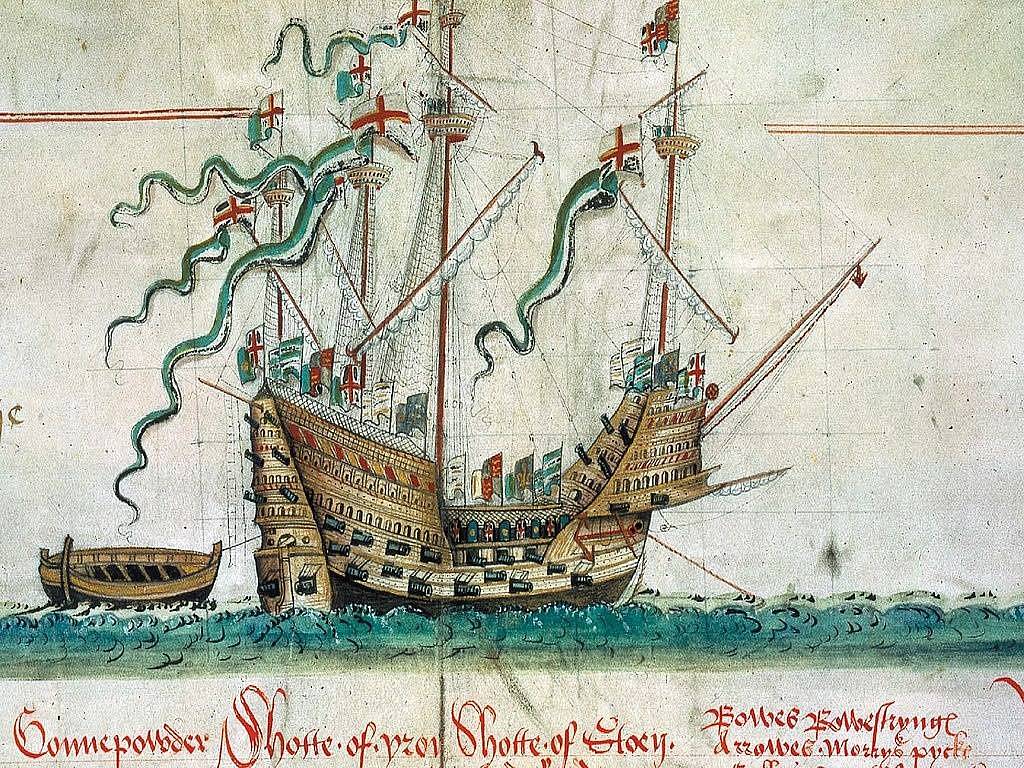 Gonnepowder Shotte·of·yron Shotte·of Stoen·
Bowes Bowestryngs
Arrowes·Morrys pycks